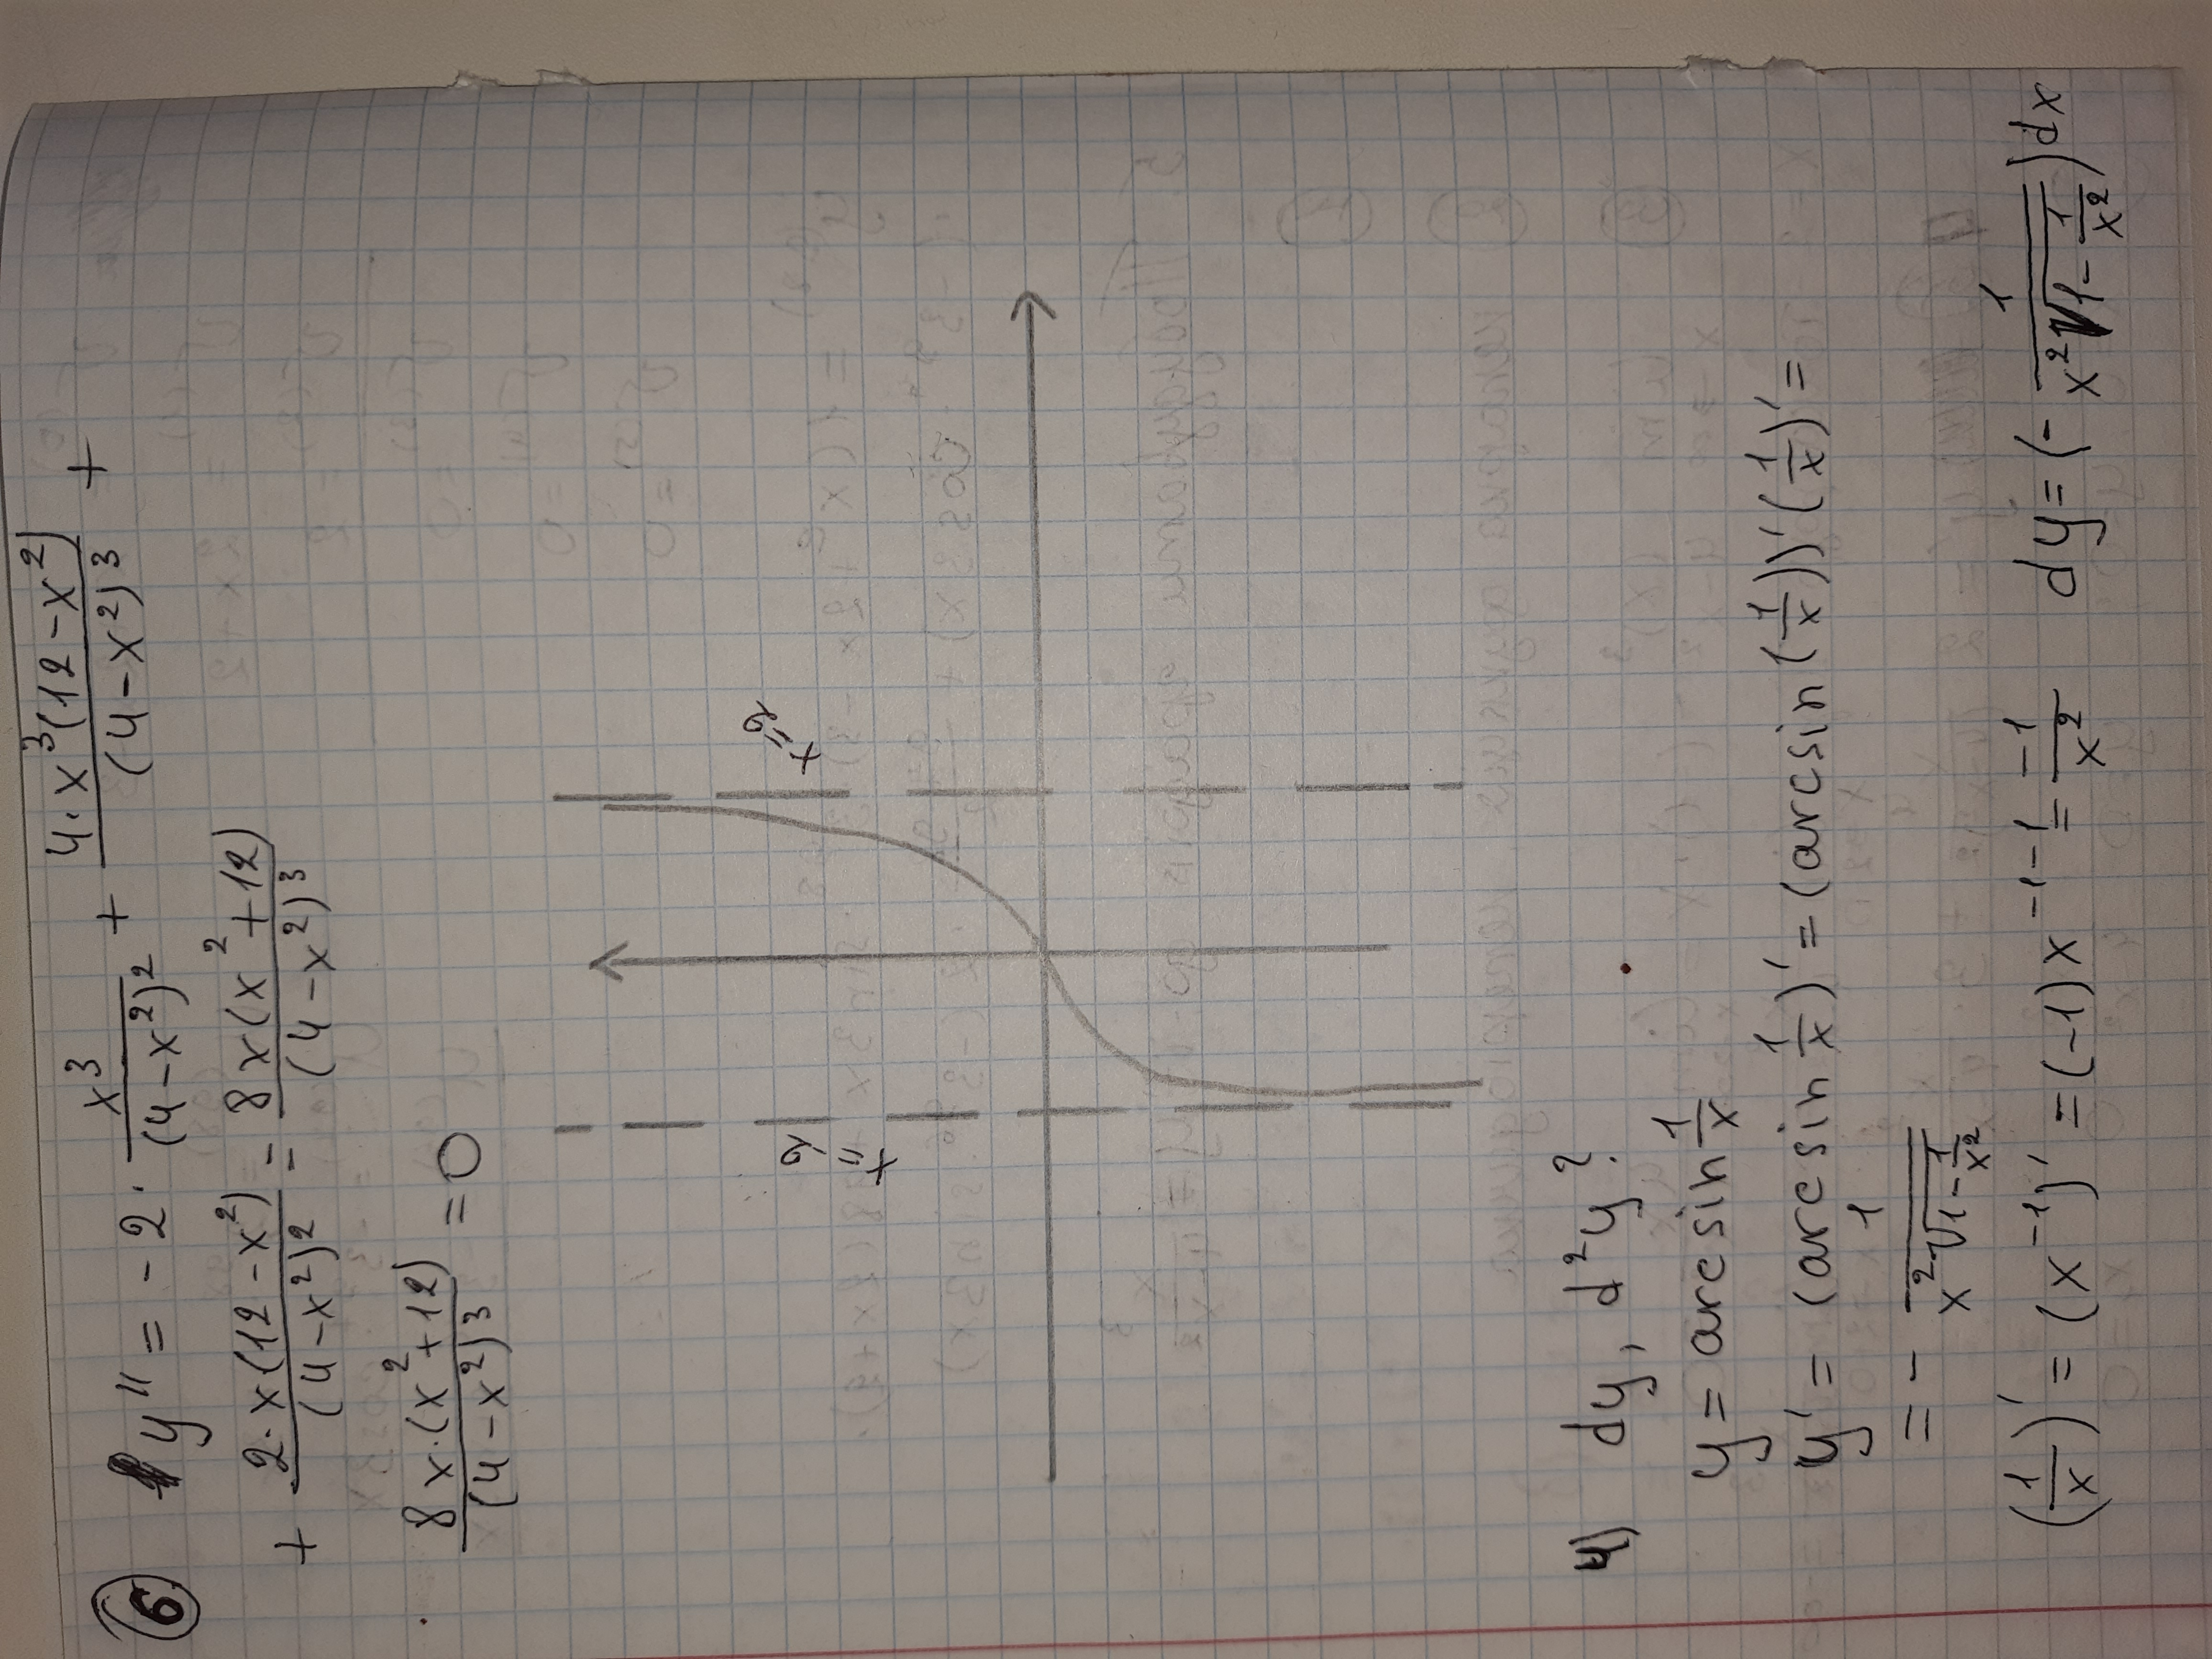 6 y'' = -2 · x³/(4-x²)² + 4·x³(12-x²)/(4-x²)³ +
+ 2·x(12-x²)/(4-x²)² = 8x(x²+12)/(4-x²)³
8x·(x²+12)/(4-x²)³ = 0
x=-2
x=2
4) dy, d²y?
y = arcsin 1/x
y' = (arcsin 1/x)' = (arcsin(1/x))' (1/x)' =
= - 1/(x²√(1-1/x²))
(1/x)' = (x⁻¹)' = (-1)x⁻¹⁻¹ = -1/x² dy = (- 1/(x²√(1-1/x²)))dx